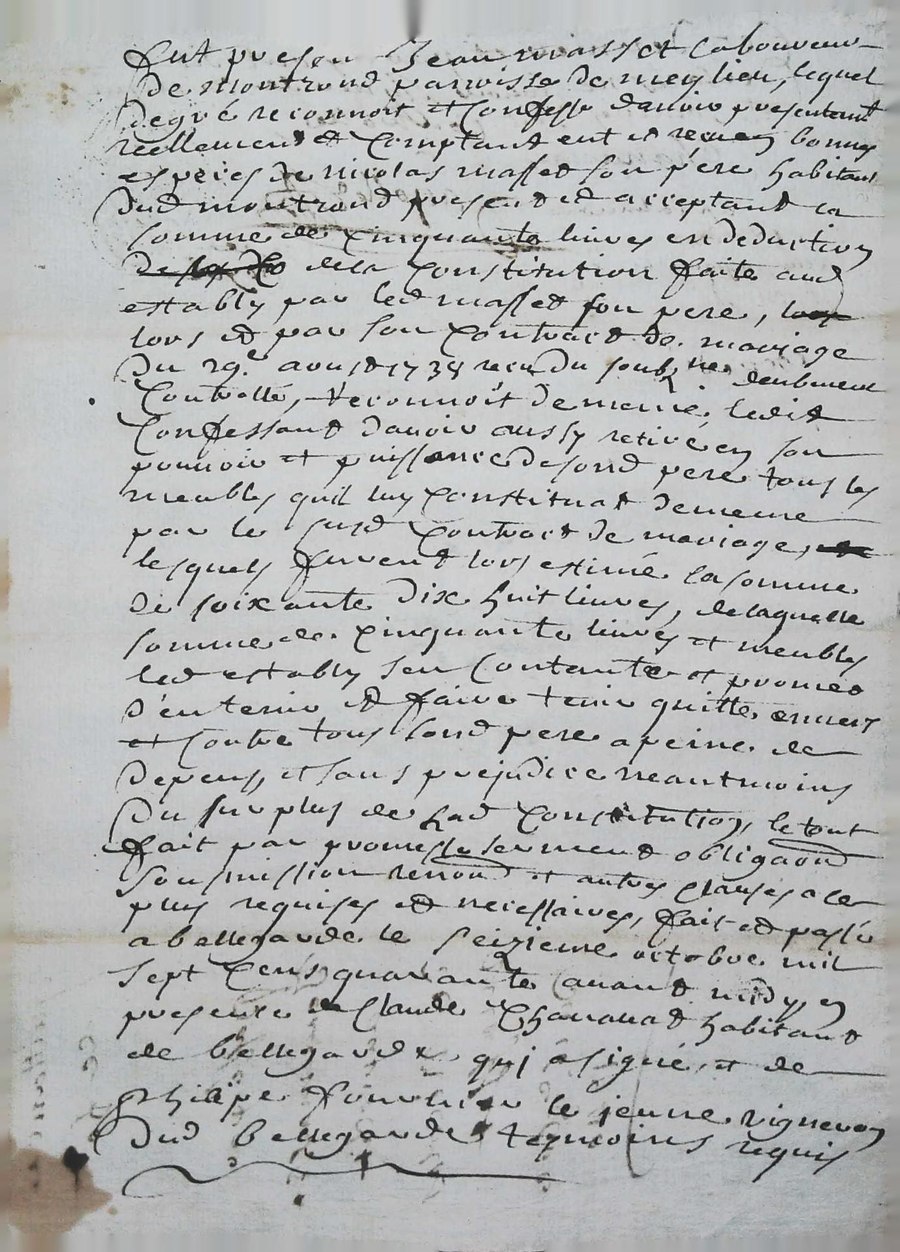 fut presen Jean masset laboureur
de montrond parroisse de meylieu, lequel
degré reconnoit et confesse d'avoir presentemt
reellement et comptant eut et receu en bonnes
espèces de nicolas masset son père habitant
dud montrond present et acceptant la
somme de cinquante livres en deduction
de la constitution faite aud
estably par led masset son pere,
lors et par son contract de mariage
du 29e aoust 1738 receu du soubne deubment
Controllé, Reconnoit de meme ledit
Confessant d'avoir aussy retiré en son
pouvoir et puissance desond pere tous les
meubles quil luy constituat de meme
par le susd Contract de mariage,
lesquels furent lors estimé la somme
de soixante dix huit livres, de laquelle
somme de cinquante livres et meubles
led estably sen contante et promet
d'en tenir et faire tenir quitte envers
et contre tous sond pere a peine de
depens, et sans prejudice neantmoins
du surplus de lad Constitution, le tout
fait par promesse serment obligaon
soumission renon et autres clauses a ce
plus requises et necessaires, fait et passé
a bellegarde le seizieme octobre mil
sept cens quarante avant midy, en
presence de Claude Chanauat habitant
de bellegarde qui a signé, et de
philipe fournier le jeune vigneron
dud bellegarde temoins requis